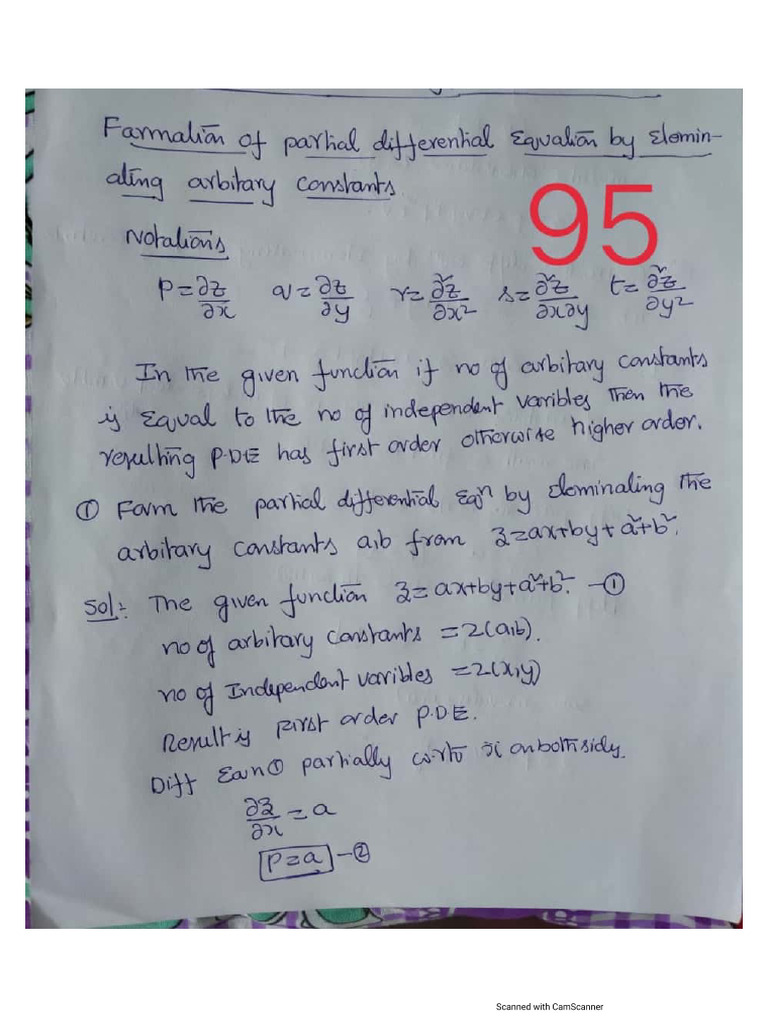 Farmation of partial differential Equation by Elemin-
ating arbitary constants.
95
Notations
P=∂z/∂x q=∂z/∂y r=∂²z/∂x² s=∂²z/∂x∂y t=∂²z/∂y²
In the given function if no of arbitary constants
is Equal to the no of independent varibles then the
resulting P.D.E has first order otherwise higher order.
① Farm the partial differential Eqn by Eleminating the
arbitary constants a,b from z=ax+by+a²+b².
Sol:- The given function z=ax+by+a²+b². -①
no of arbitary constants =2(a,b).
no of Independent varibles =2(x,y)
Result is First order P.D.E.
Diff Eqn① partially w.r.to x on both sides.
∂z/∂x = a
P=a -②
Scanned with CamScanner